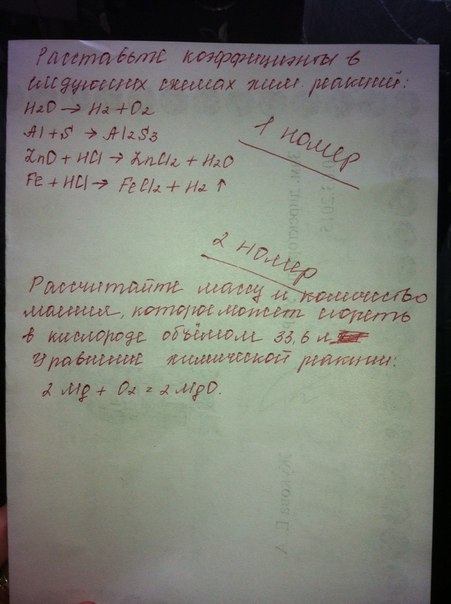 Расставьте коэффициенты в
следующих схемах хим реакций:
H2O → H2 + O2
Al + S → Al2S3
ZnO + HCl → ZnCl2 + H2O
Fe + HCl → FeCl2 + H2 ↑
1 номер
2 номер
Рассчитайте массу и количество
магния, которое может сгореть
в кислороде объёмом 33,6 л
Уравнение химической реакции:
2 Mg + O2 = 2 MgO.